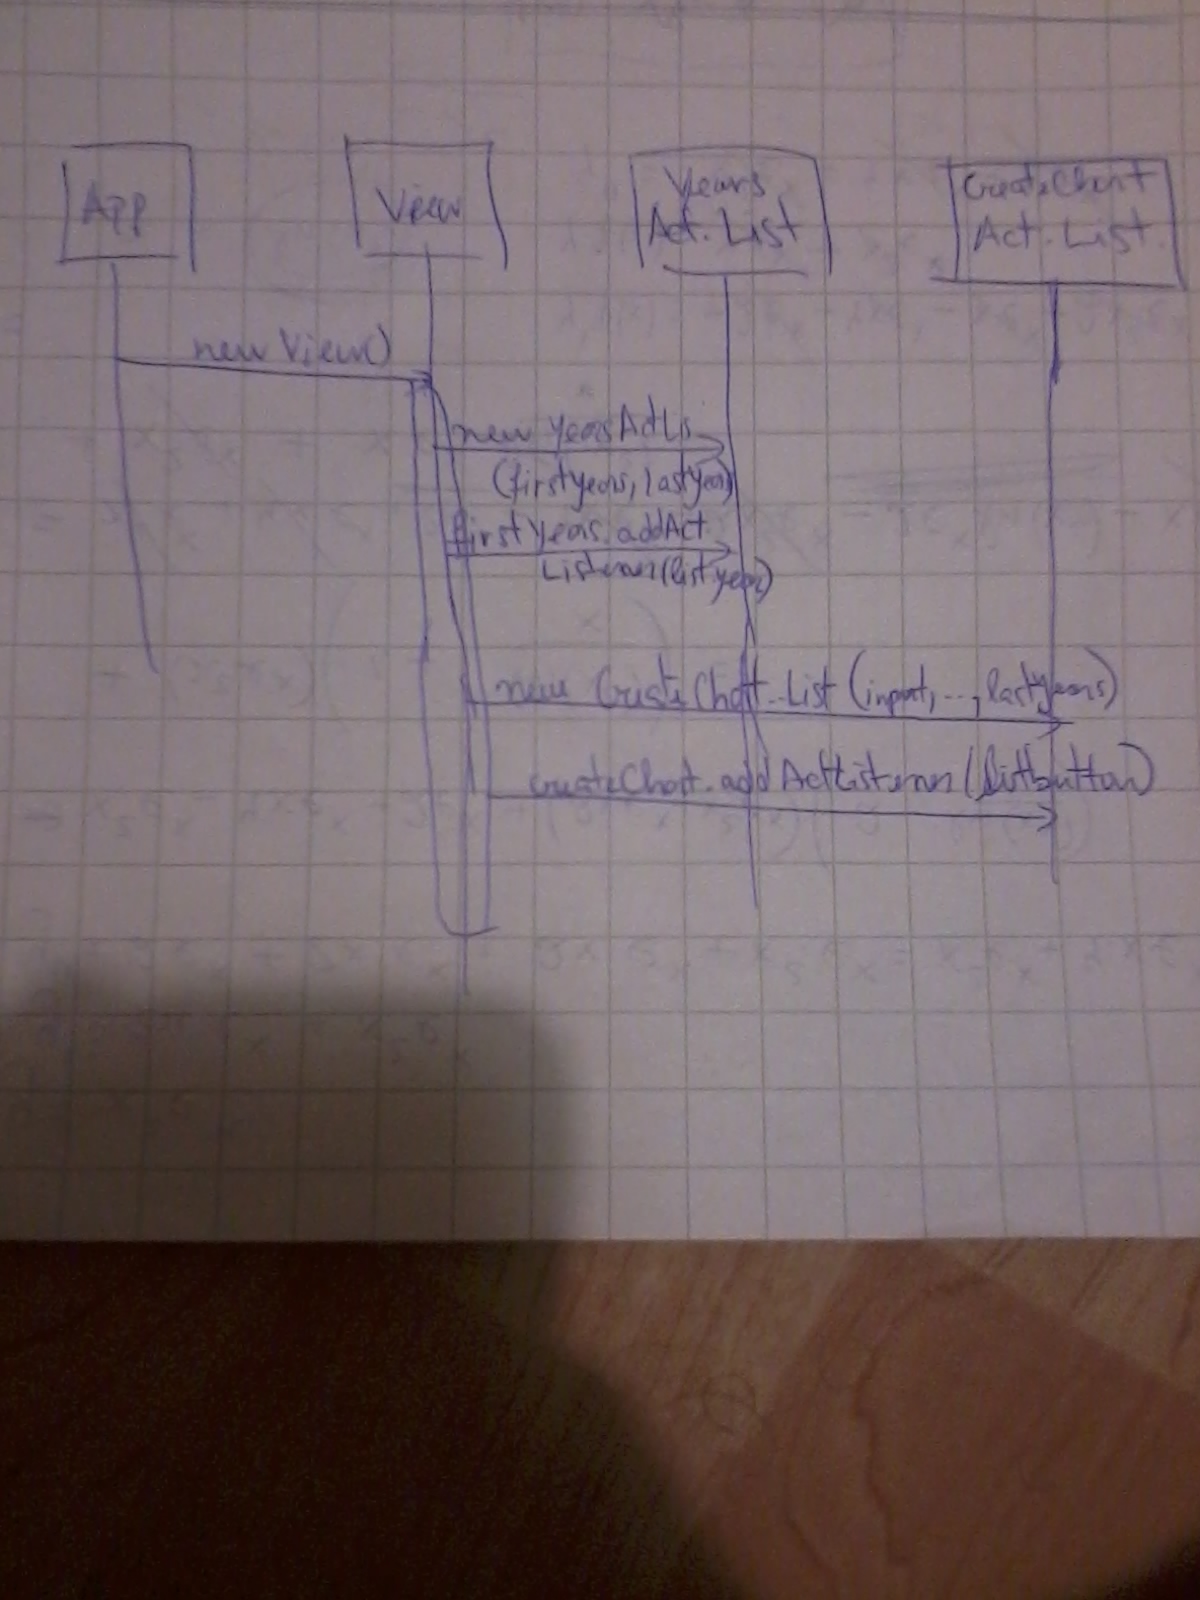 App
View
Years
Act. List
CreateChart
Act. List
new View()
new yearsActLis
(firstyears, lastyear)
firstYears.addAct
Listener(listyear)
new CreateChart..List (input, ..., lastyears)
createChart.addActListener(listbutton)